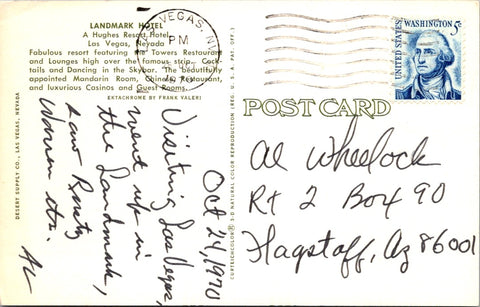 LANDMARK HOTEL
A Hughes Resort Hotel
Las Vegas, Nevada
Fabulous resort featuring the Towers Restaurant
and Lounges high over the famous strip. Cock-
tails and Dancing in the Skybar. The beautifully
appointed Mandarin Room, Chinese Restaurant,
and luxurious Casinos and Guest Rooms.
EKTACHROME BY FRANK VALERI
DESERT SUPPLY CO., LAS VEGAS, NEVADA
VEGAS, NV
PM
WASHINGTON 5c
UNITED STATES
POST CARD
CURTEICHCOLOR® 3-D NATURAL COLOR REPRODUCTION (REG. U.S.A. PAT. OFF.)
Oct 24, 1970
Visiting Las Vegas,
went up in
the Landmark,
saw Rusty
Warren etc.
AL
Al Wheelock
Rt 2 Box 90
Flagstaff, Az 86001